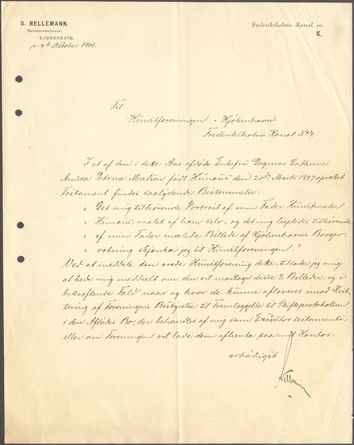 G. HELLEMANN.
KJØBENHAVN.
Frederiksholms Kanal
K.
d. 4de Oktober 1901.
Til
Kunstforeningen i Kjøbenhavn
Frederiksholms Kanal
I et af den i dette Aar afdøde Enkefru Dagmar Cathrine
Andrea Petrine født den 20de Marts 1897 oprettet
Testament findes saalydende Bestemmelse:
" Det mig tilhørende Portrait af min Fader Kunstmaler
" malet af ham selv, og det mig ligeledes tilhørende
" af min Fader malede Billede af Kjøbenhavns Borger-
" væbning skjænker jeg til Kunstforeningen."
Ved at meddele den ærede Kunstforening dette tillader jeg mig
at bede mig meddelt om den vil modtage disse 2 Billeder og i
bekræftende Fald naar og hvor de kunne afleveres imod Kvit-
tering af Foreningens Bestyrelse til Fremlæggelse til Skifteprotokollen
i den Afdødes Bo, der behandles af mig som Executor testamenti
eller om Foreningen vil lade dem afhente paa mit Kontor.
Ærbødigst